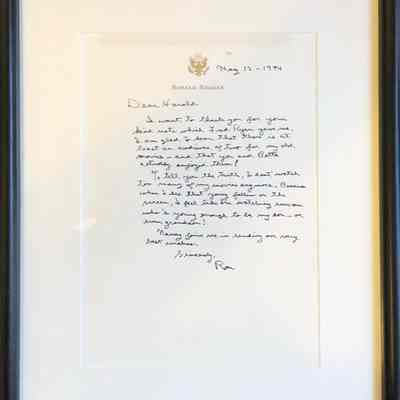 May 12 - 1994
RONALD REAGAN
Dear Harold
I want to thank you for your
kind note which Fred Ryan gave me.
I am glad to learn that there is at
least an audience of two for my old
movies - and that you and Bette
actually enjoyed them!
To tell you the truth, I don't watch
too many of my movies anymore. Because
when I see that young fellow on the
screen, I feel like I'm watching someone
who is young enough to be my son - or
even grandson!
Nancy joins me in sending our very
best wishes.
Sincerely,
Ron